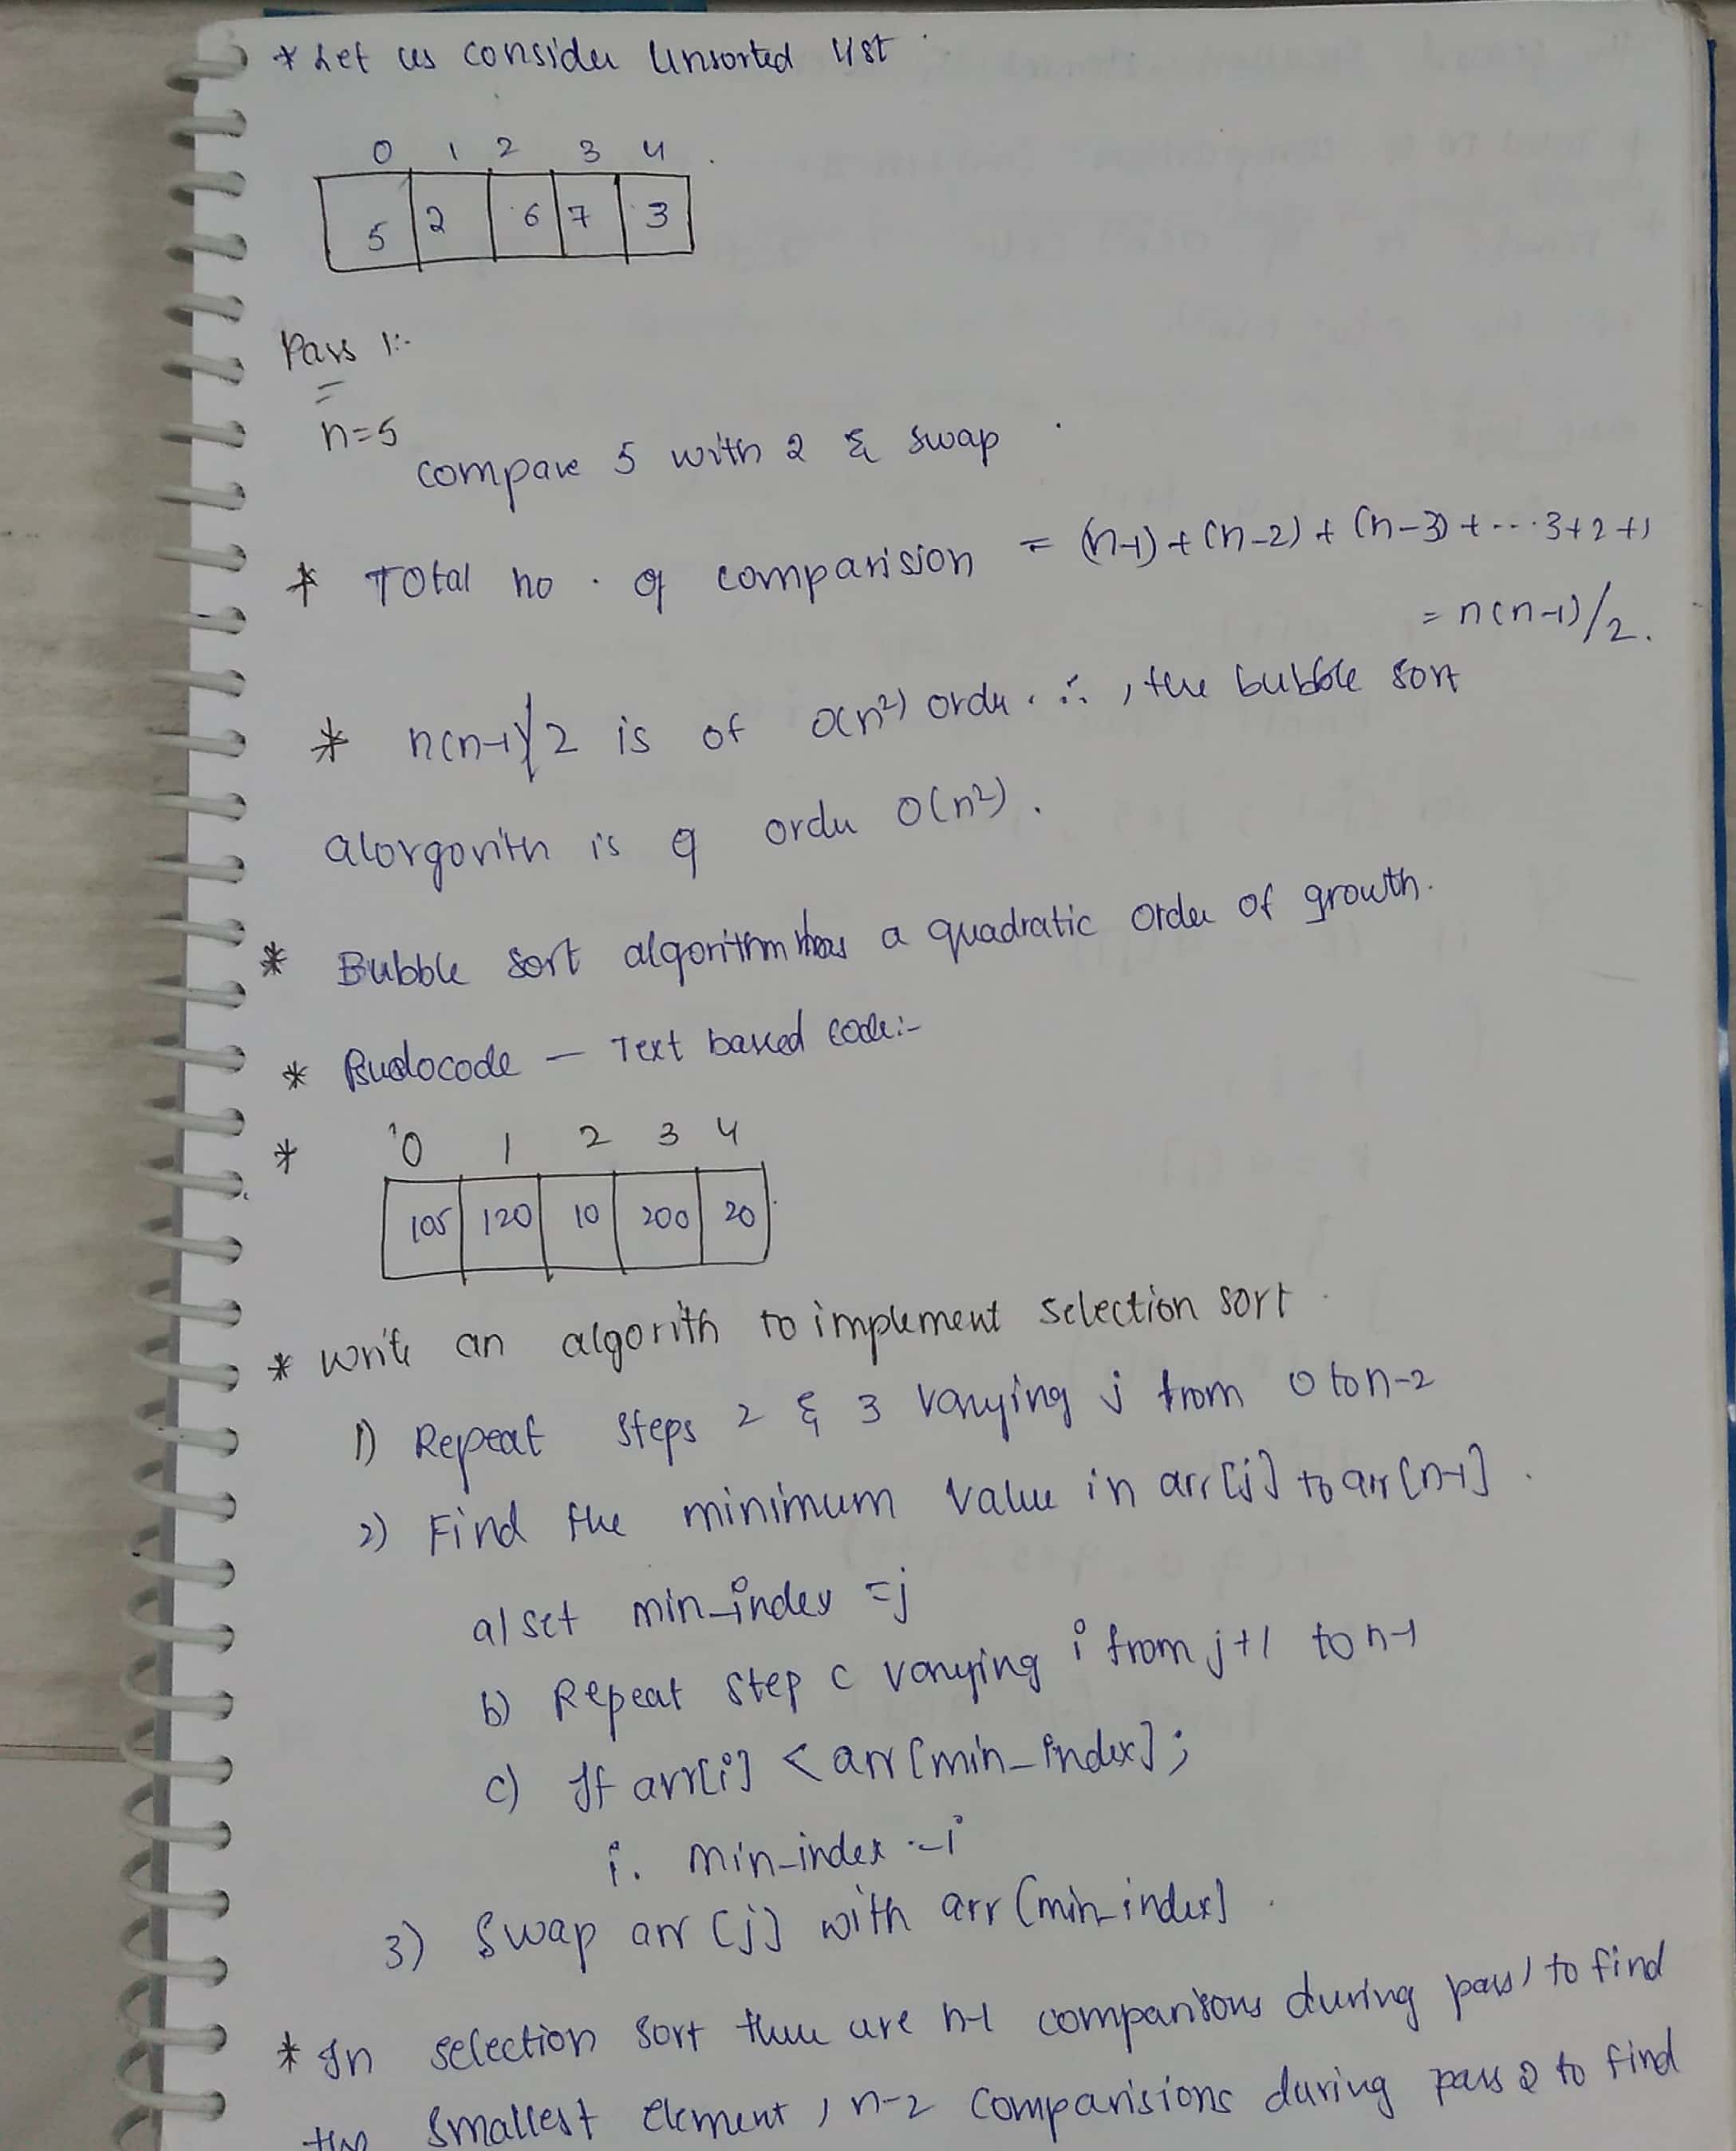 * Let us consider Unsorted list
0 1 2 3 4
5 2 6 7 3
Pass 1:-
n=5
compare 5 with 2 & swap
* Total no. of comparision = (n-1) + (n-2) + (n-3) + ... 3+2+1
= n(n-1)/2.
* n(n-1)/2 is of O(n²) order. ∴, the bubble sort
alorgorith is of order O(n²).
* Bubble sort algorithm has a quadratic order of growth.
* Psudocode – Text based code:-
* 0 1 2 3 4
105 120 10 200 20
* Write an algorith to implement selection sort.
1) Repeat steps 2 & 3 varying j from 0 to n-2
2) Find the minimum value in arr[j] to arr[n-1].
a) set min_index = j
b) Repeat step c varying i from j+1 to n-1
c) If arr[i] < arr[min_index];
i. min_index = i
3) Swap arr[j] with arr[min_index].
* In selection sort there are n-1 comparisons during pass 1 to find
the smallest element, n-2 comparisions during pass 2 to find